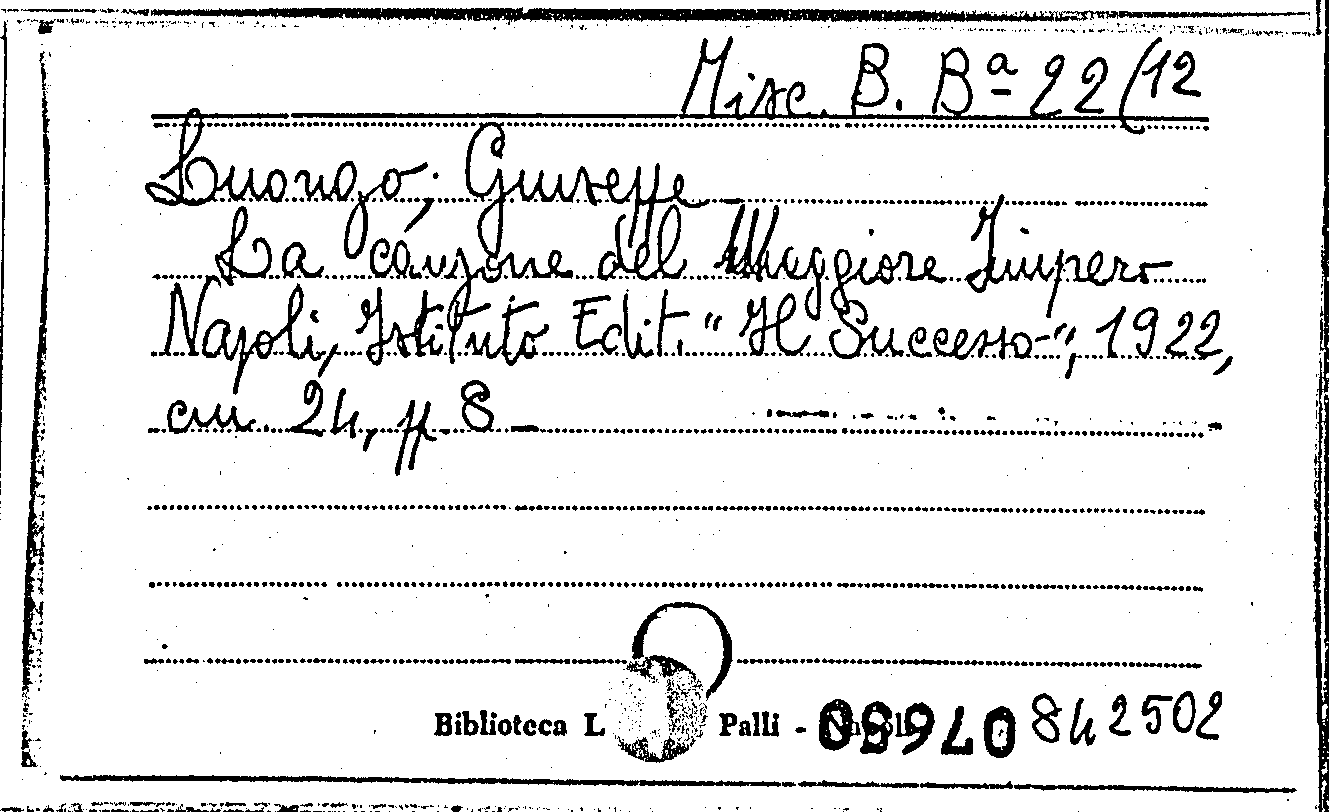 Misc. B. Bª 22 (12
Luongo, Giuseppe
La canzone del Maggiore Impero
Napoli, Istituto Edit. "Il Successo-", 1922,
cm. 24, pp. 8 -
Biblioteca L Palli - 842502